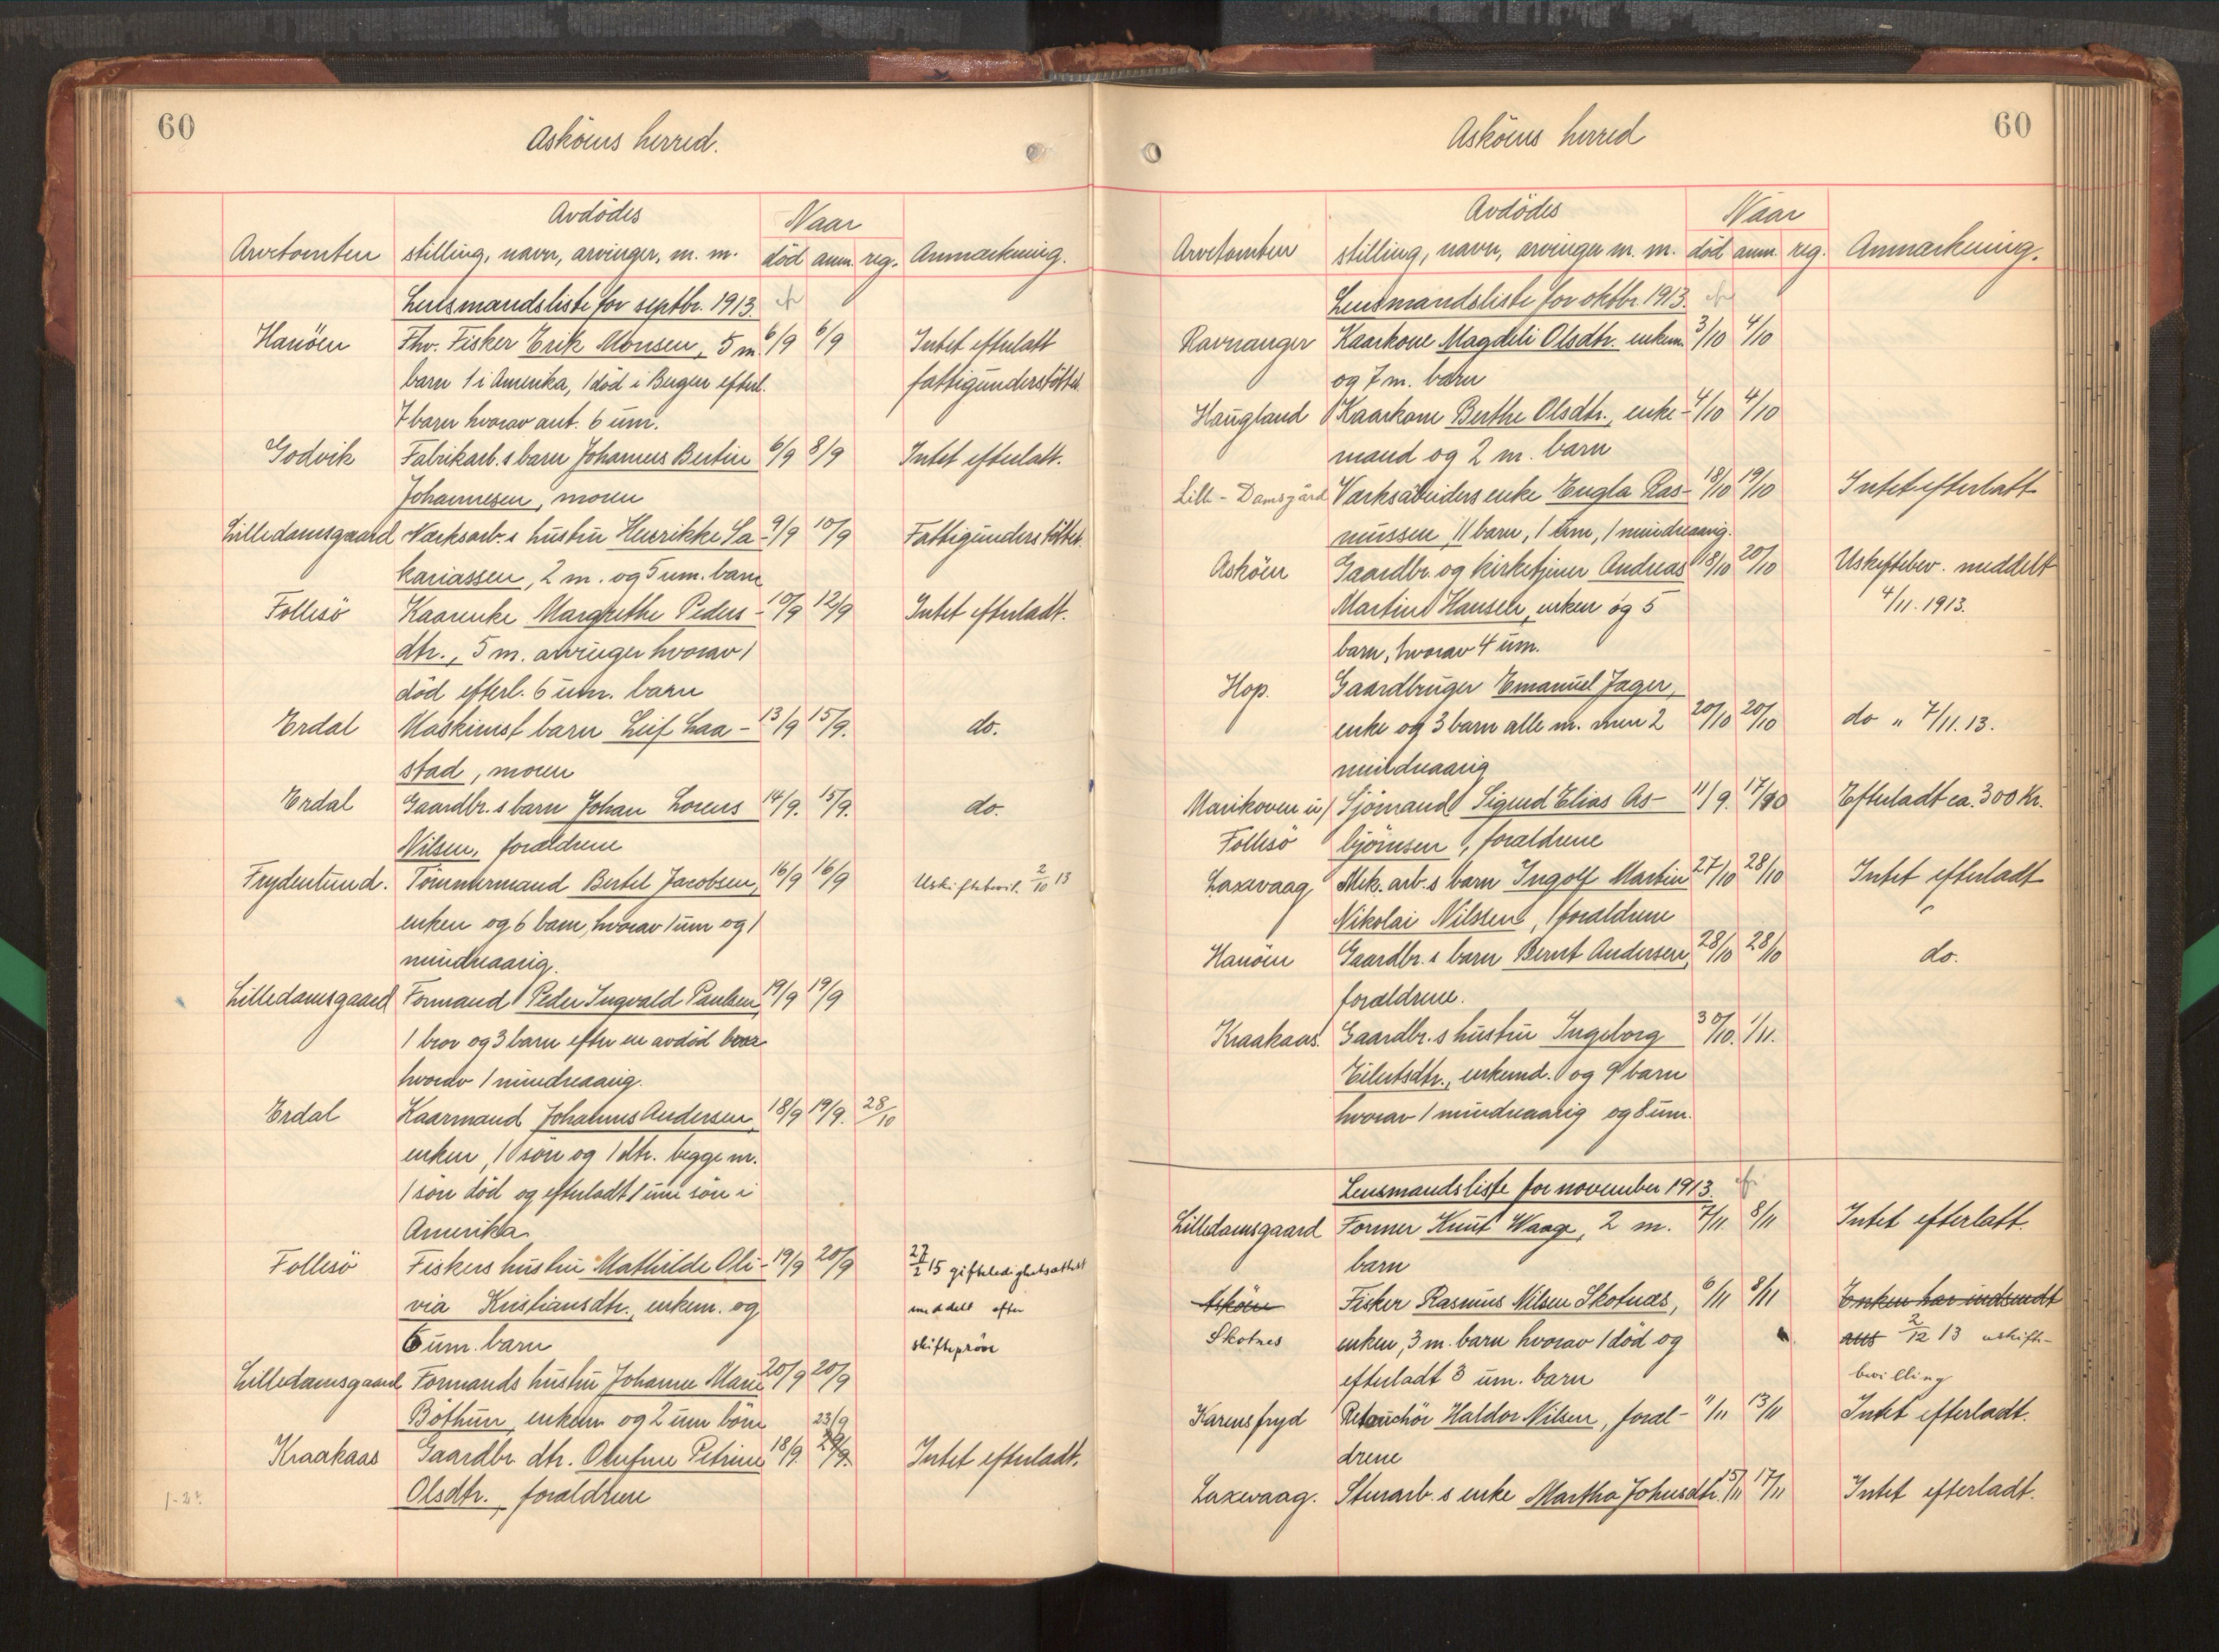 60
Asköens herred.
Avdödes
Naar
Arvetomten stilling, navn, arvinger, m. m. död anm. reg. Anmærkning.
Lensmandsliste for septbr. 1913.
Hanöen Fhv. Fisker Erik Monsen, 5 m. 6/9 6/9 Intet efterlatt
barn 1 i Amerika, 1 död i Bergen efterl. fattigunderstöttet.
7 barn hvorav ant. 6 um.
Godvik Fabrikarb.s barn Johannes Bertin 6/9 8/9 Intet efterlatt.
Johannesen, moren
Lilledamsgaard Værksarb.s hustru Henrikke Sa- 9/9 10/9 Fattigunderstöttet.
kariassen, 2 m. og 5 um. barn
Follesö Kaarenke Margrethe Peders- 10/9 12/9 Intet efterladt.
dtr., 5 m. arvinger hvorav 1
död efterl. 6 um. barn
Erdal Maskinist barn Leif Laa- 13/9 15/9. do.
stad, moren
Erdal Gaardbr.s barn Johan Lorens 14/9. 15/9. do.
Nilsen, forældrene
Frydenlund. Tömmermand Bertel Jacobsen, 16/9 16/9 Uskiftebevil. 2/10 13
enken og 6 barn, hvorav 1 um og 1
mindreaarig.
Lilledamsgaard Formand Peder Ingvald Paulsen, 19/9 19/9
1 bror og 3 barn efter en avdöd bror
hvorav 1 mindreaarig.
Erdal Kaarmand Johannes Andersen, 18/9 19/9. 28/10
enken, 1 sön og 1 dtr. begge m.
1 sön död og efterladt 1 um sön i
Amerika
Follesö Fiskers hustru Mathilde Oli- 19/9 20/9 27/2 15 gifteledighetsattest
via Kristiansdtr., enkem. og meddelt efter
6 um. barn skiftepröve
Lilledamsgaard Formands hustru Johanne Marie 20/9 20/9
Böthun, enkem og 2 um börn 23/9
Kraakaas Gaardbr. dtr. Olufine Petrine 18/9. 29/9. Intet efterladt.
Olsdtr., forældrene
60
Asköens herred
Avdödes
Naar
Arvetomten stilling, navn, arvinger m. m. död anm. reg. Anmærkning.
Lensmandsliste for oktbr. 1913.
Ravnanger Kaarkone Magdeli Olsdtr. enkem. 3/10 4/10
og 7 m. barn
Haugland Kaarkone Berthe Olsdtr., enke- 4/10 4/10
mand og 2 m. barn
Lille-Damsgård Værksarbeiders enke Engla Ras- 18/10 19/10 Intet efterlatt
mussen, 11 barn, 1 um, 1 mindreaarig.
Asköen Gaardbr. og kirketjener Andreas 18/10 20/10 Uskiftebev. meddelt
Martin Hansen, enken og 5 4/11. 1913.
barn, hvorav 4 um.
Hop. Gaardbruger Emanuel Jager,
enke og 3 barn alle m. men 2 20/10 20/10 do " 7/11. 13.
mindreaarig
Marikoven u/ Sjömand Sigurd Elias As- 11/9. 17/10 Efterladt ca. 300 Kr.
Follesö björnsen, forældrene
Laxevaag Mek. arb.s barn Ingolf Martin 27/10 28/10 Intet efterladt
Nikolai Nilssen, forældrene
Hanöen Gaardbr.s barn Bernt Andersen, 28/10 28/10 do.
forældrene.
Kraakaas. Gaardbr.s hustru Ingeborg 30/10. 1/11.
Eilertsdtr., enkemd. og 9 barn
hvorav 1 mindreaarig og 8 um.
Lensmandsliste for november 1913.
Lilledamsgaard Former Knut Waage, 2 m. 7/11 8/11 Intet efterlatt.
barn
Asköen Fisker Rasmus Nilsen Skotnæs, 6/11 8/11 Enken har indsendt
Skotnes enken, 3 m. barn hvorav 1 död og ans 2/12 13 uskifte-
efterladt 3 um. barn bevilling
Karensfryd Retouchör Haldor Nilsen, foræl- 11/11 13/11 Intet efterladt.
drene
Laxevaag. Stuarb.s enke Martha Johnsdtr. 15/11 17/11 Intet efterladt.